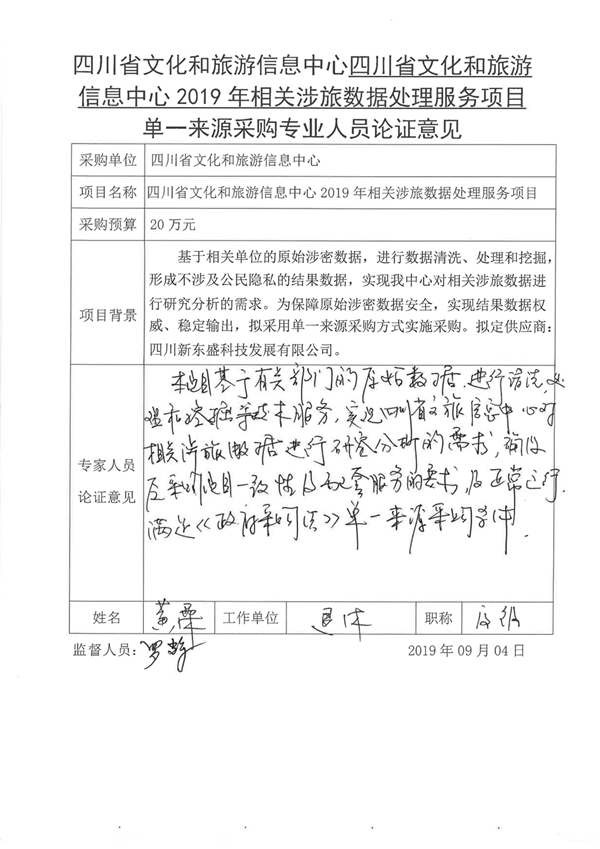 四川省文化和旅游信息中心四川省文化和旅游
信息中心 2019 年相关涉旅数据处理服务项目
单一来源采购专业人员论证意见
采购单位 四川省文化和旅游信息中心
项目名称 四川省文化和旅游信息中心 2019 年相关涉旅数据处理服务项目
采购预算 20 万元
项目背景
基于相关单位的原始涉密数据，进行数据清洗、处理和挖掘，
形成不涉及公民隐私的结果数据，实现我中心对相关涉旅数据进
行研究分析的需求。为保障原始涉密数据安全，实现结果数据权
威、稳定输出，拟采用单一来源采购方式实施采购。拟定供应商：
四川新东盛科技发展有限公司。
专家人员
论证意见
本项目基于有关部门的原始数据，进行清洗、处
理和挖掘等技术服务，实现四川省文旅信息中心对
相关涉旅数据进行研究分析的需求，确保
采购项目一致性及配套服务的要求，及正常运行，
满足《政府采购法》单一来源采购条件
姓名 工作单位 退休 职称 高级
监督人员： 2019 年 09 月 04 日